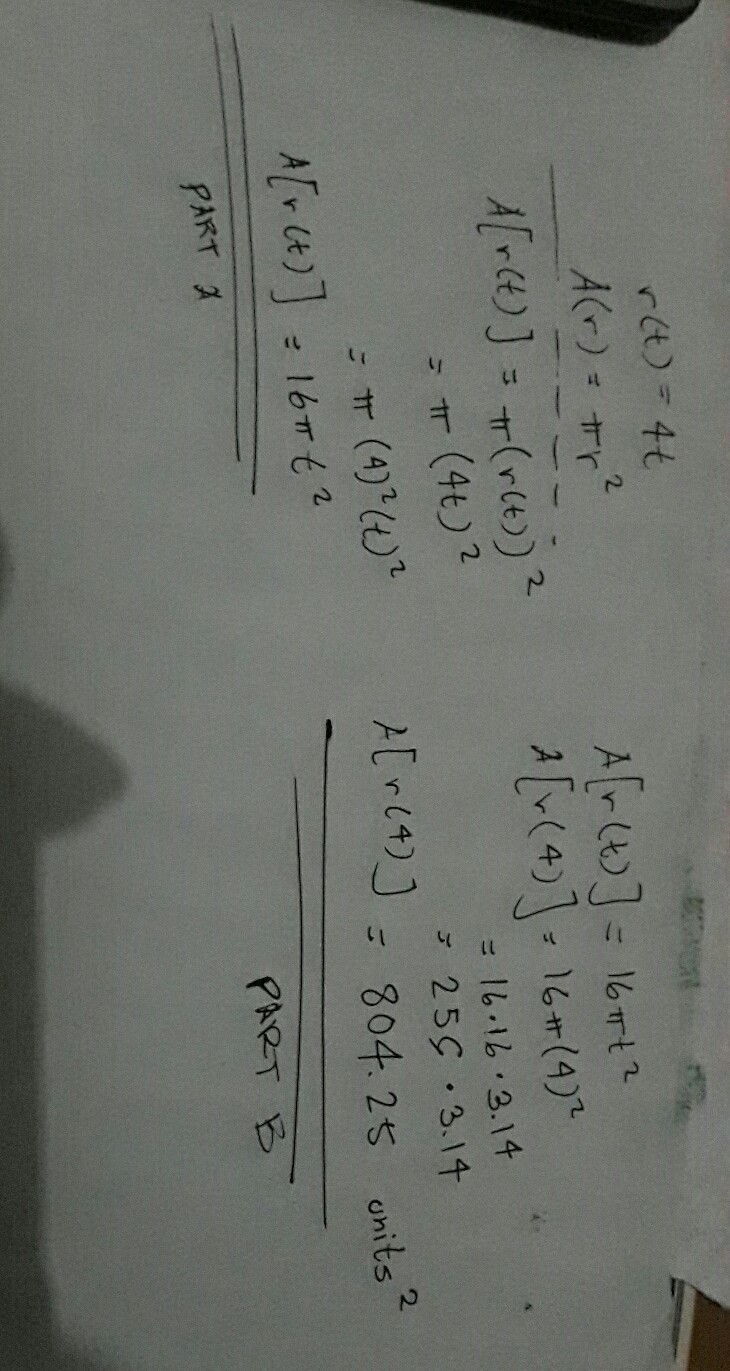 r(t) = 4t
A(r) = πr²
A[r(t)] = π(r(t))²
= π(4t)²
= π(4)²(t)²
A[r(t)] = 16πt²
PART A
A[r(t)] = 16πt²
A[r(4)] = 16π(4)²
= 16·16·3.14
= 256·3.14
A[r(4)] = 804.25 units²
PART B